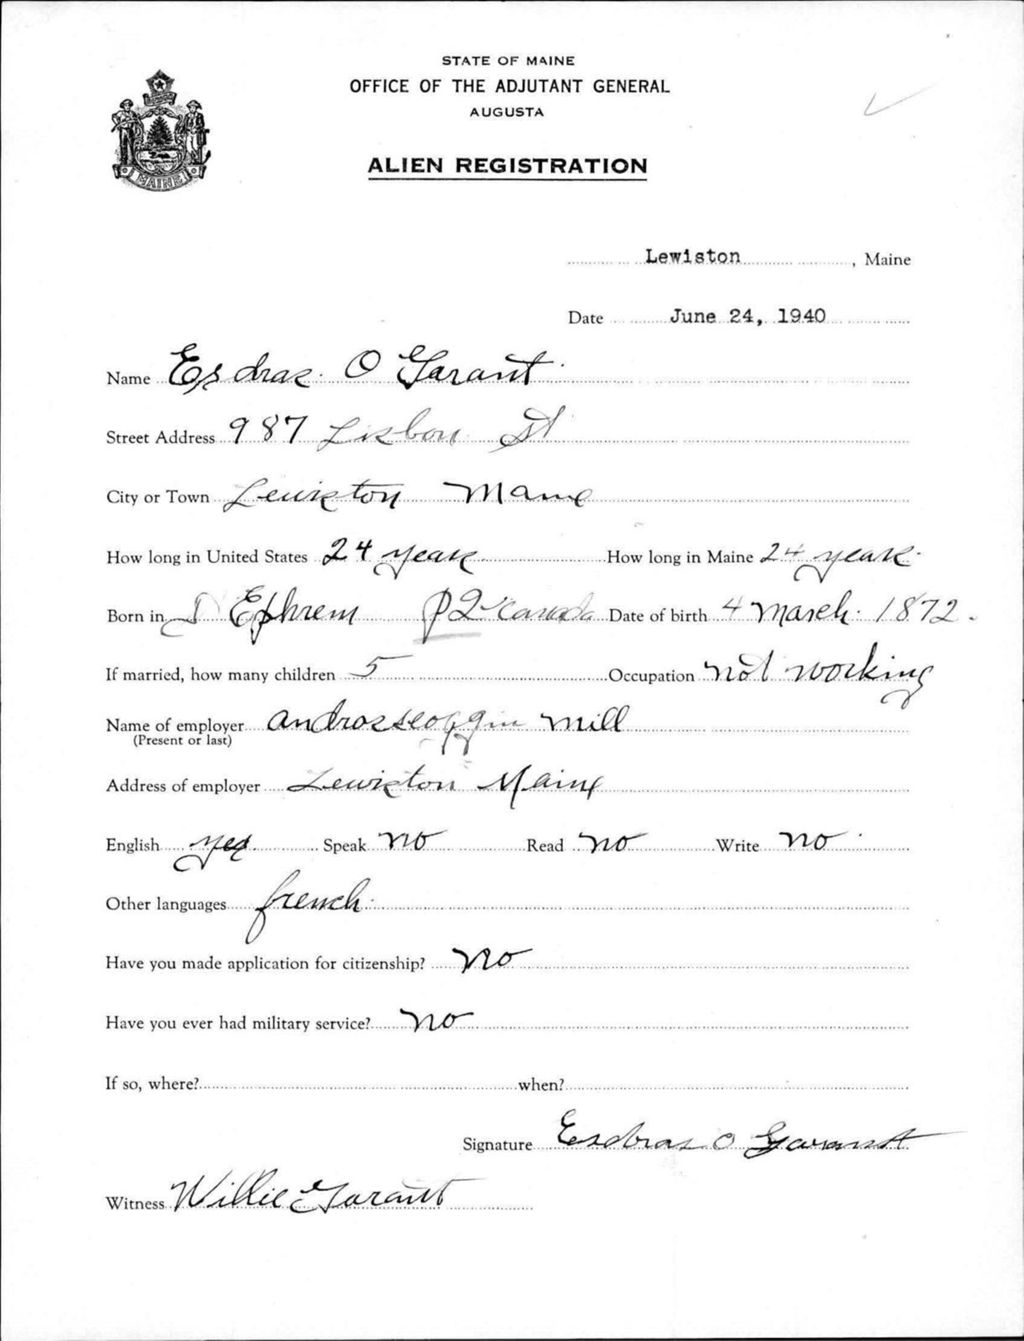 STATE OF MAINE
OFFICE OF THE ADJUTANT GENERAL
AUGUSTA
ALIEN REGISTRATION
MAINE
Lewiston, Maine
Date June 24, 1940
Name Esdras O Garant
Street Address 987 Lisbon St
City or Town Lewiston Maine
How long in United States 24 years How long in Maine 24 years
Born in St Ephrem P2 Canada Date of birth 4 March 1872.
If married, how many children 5 Occupation not working
Name of employer androsscoggin mill
(Present or last)
Address of employer Lewiston Maine
English yes Speak no Read no Write no
Other languages french
Have you made application for citizenship? no
Have you ever had military service? no
If so, where? when?
Signature Esdras O Garant
Witness Willie Garant